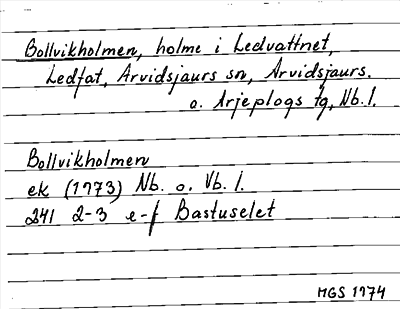 Bollvikholmen, holme i Ledvattnet,
Ledfat, Arvidsjaurs sn, Arvidsjaurs.
o. Arjeplogs tg, Nb. l.
Bollvikholmen
ek (1773) Nb. o. Vb. l.
241 2-3 e-f Bastuselet
MGS 1974